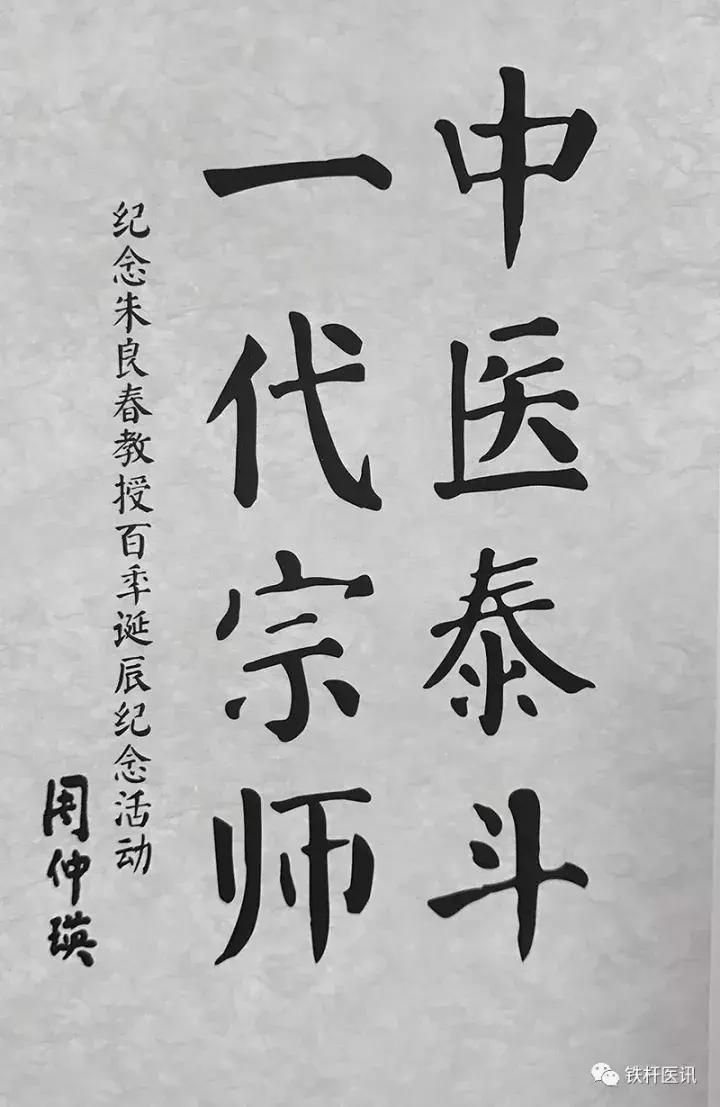 中医泰斗
一代宗师
纪念朱良春教授百年诞辰纪念活动
周仲瑛
铁杆医讯